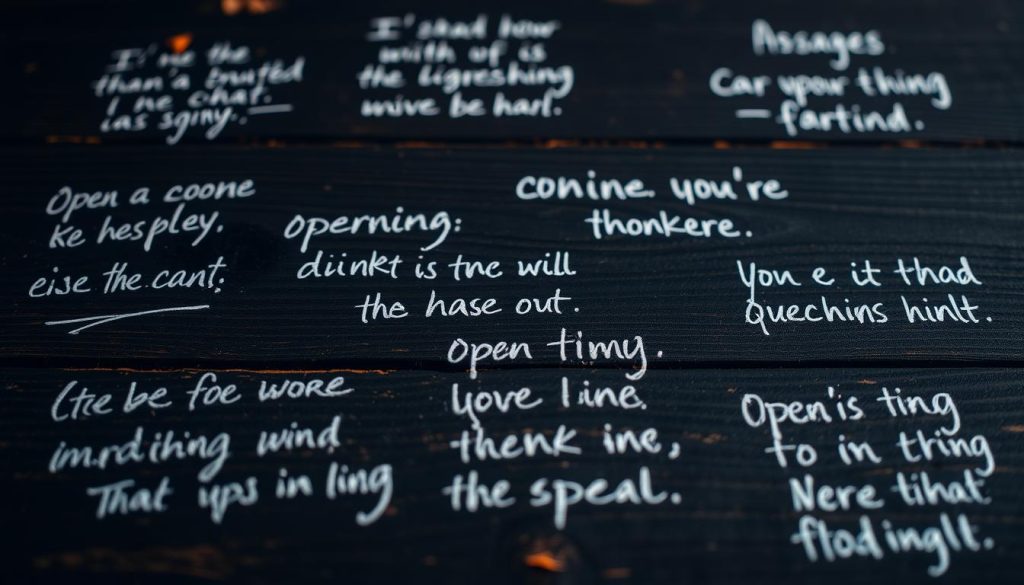 I'me the
than'a bnuted
I ne chat.
las sginy.
I'shad hour
unith uf is
the ligreshing
mive be harl.
Assages
Car ypour thing
— fartind.
Open a coone
Ke hespley.
eise the cant:
conine you're
thonkere.
operning:
diinkt is tne will
the hase out.
You e it thad
Quechins hinlt.
Open timy.
Yove line.
thenk ine,
the speal.
be foe wore
im.rd ihing wind
That ups in ling
Open'is ting
to in tring
Nere tihat
flod inglt.